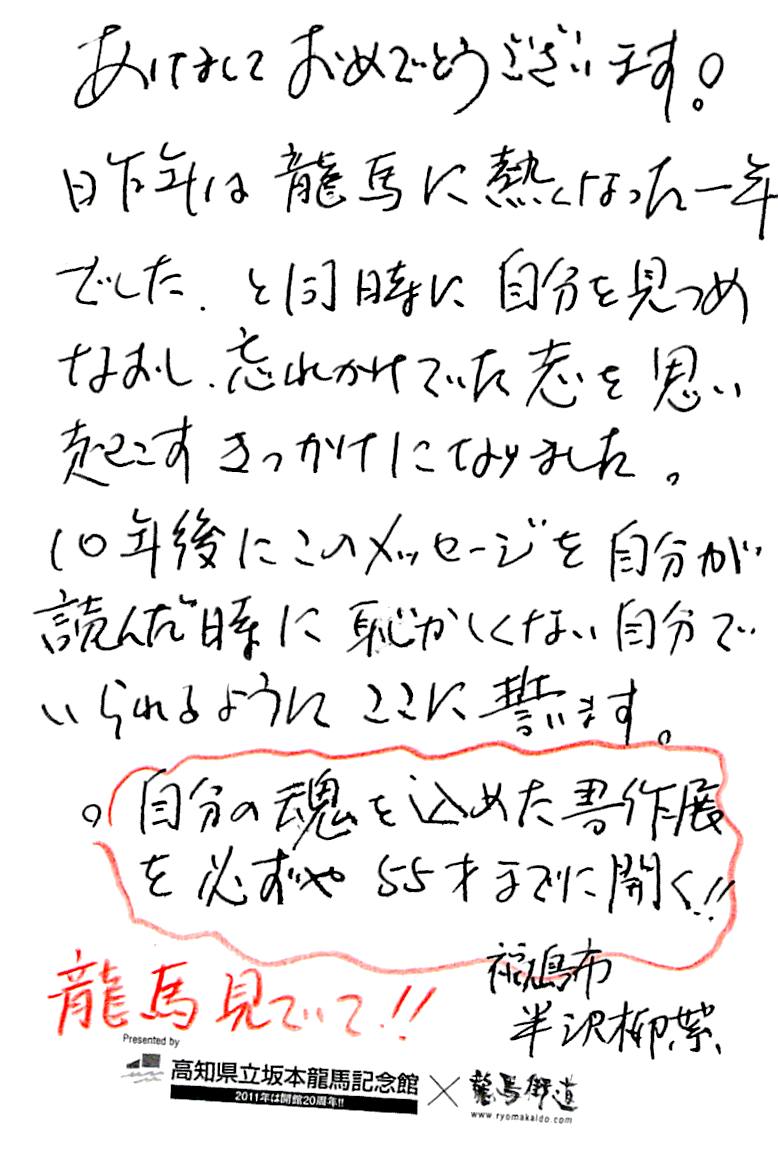 あけまして おめでとうございます!
昨年は 龍馬に 熱くなった一年
でした、と同時に 自分を見つめ
なおし、忘れかけていた志を思い
起こす きっかけになりました。
10年後にこのメッセージを自分が
読んだ時に 恥かしくない自分で
いられるように ここに 誓います。
。自分の魂を込めた書作展
を必ずや 55才までに開く!!
福島市
半沢柳紫
龍馬見ていて!!
Presented by
高知県立坂本龍馬記念館
2011年は開館20周年!!
×
龍馬街道
www.ryomakaido.com